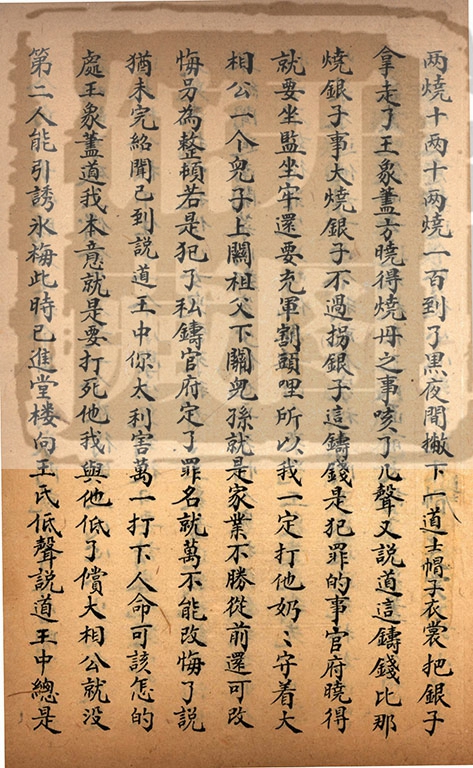 两燒十两十两燒一百到了黒夜間撇下一道士帽子衣裳把銀子
拿走了王象藎方曉得燒丹之事咳了几聲又說道這鑄錢比那
燒銀子事大燒銀子不過拐銀子這鑄錢是犯罪的事官府曉得
就要坐監坐牢還要充軍割頭哩所以我一定打他奶〻守着大
相公一个兒子上關祖父下關兒孫就是家業不勝從前還可改
悔另為整頓若是犯了私鑄官府定了罪名就萬不能改悔了說
猶未完紹聞已到說道王中你太利害萬一打下人命可該怎的
處王象藎道我本意就是要打死他我與他低了償大相公就没
第二人能引誘氷梅此時已進堂楼向王氏低聲說道王中總是